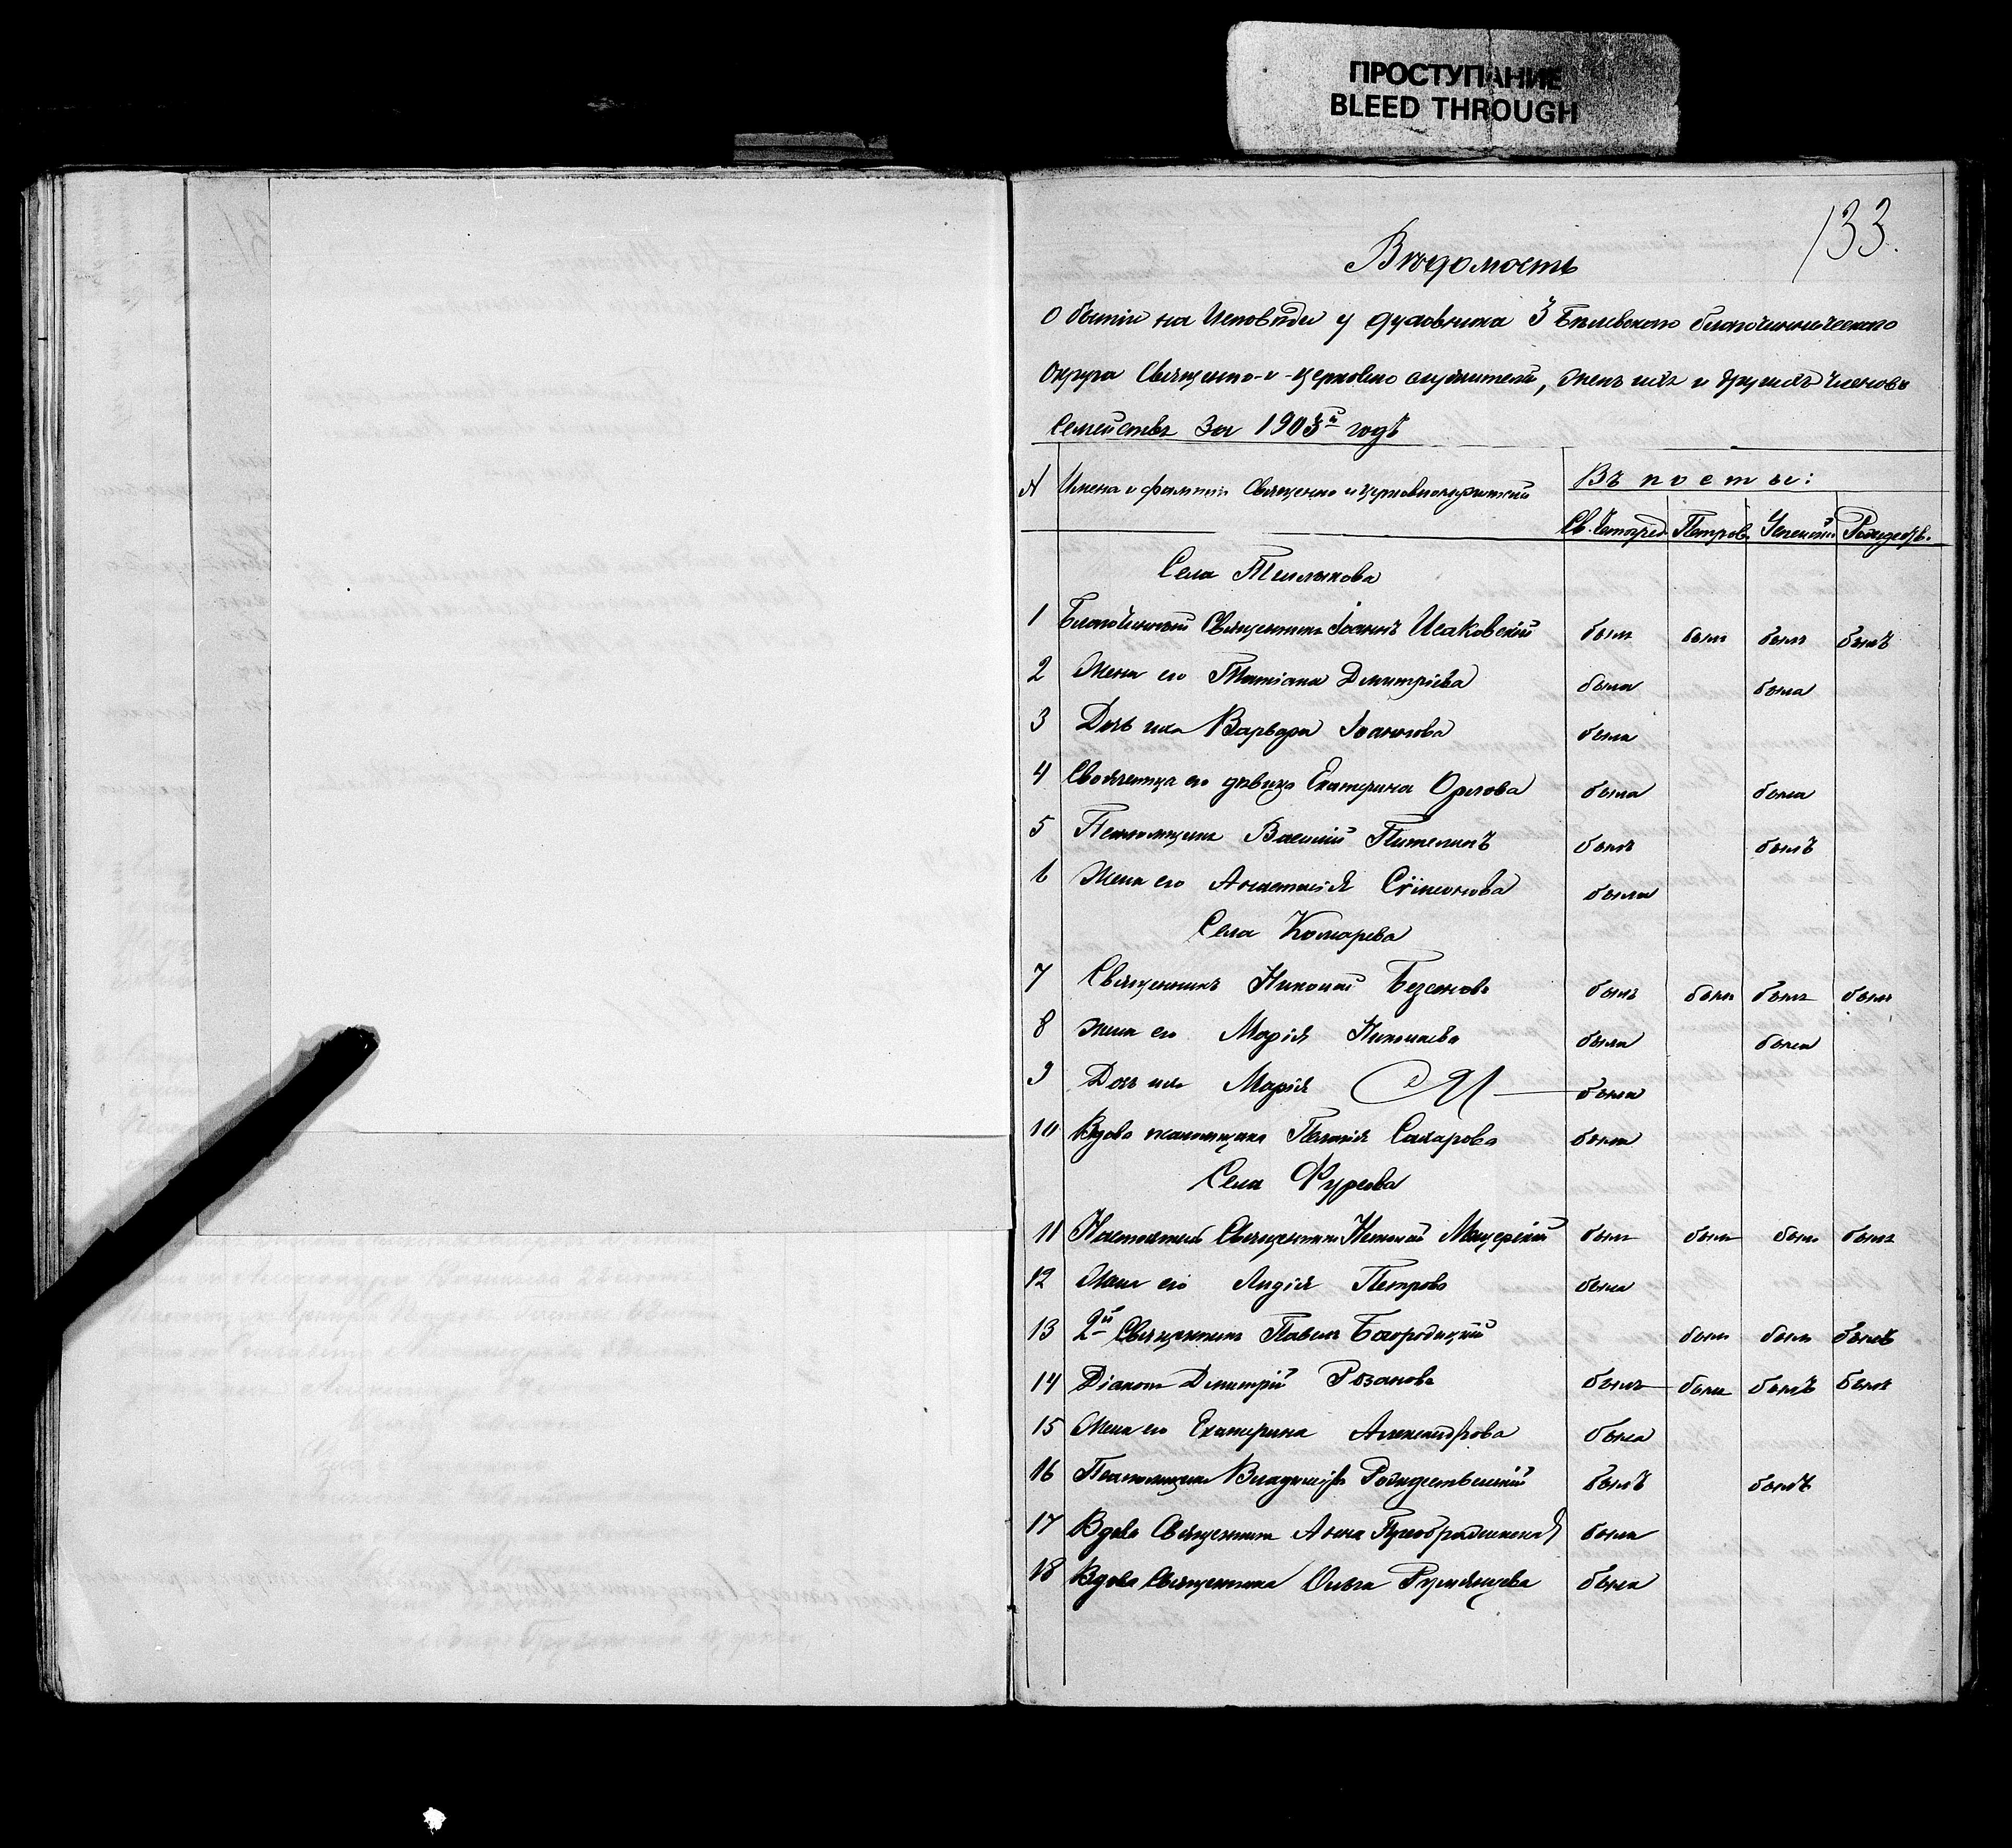 ПРОСТУПАНИЕ
BLEED THROUGH
133.
Вѣдомость
о бытіи на Исповѣди у духовника 3 Бѣлевскаго благочинническаго
округа Священно-и-церковно служителей, женъ ихъ и другихъ членовъ
Семействъ за 1903й годъ
№ Имена и фамиліи Священно и церковнослужителей Въ посты:
Св. Четыред. Петров. Успенскій Рождеств.
Села
1 Благочинный Священникъ Іоаннъ Исаковскій былъ былъ былъ былъ
2 Жена его Татіана Димитріева была была
3 Дочь ихъ Варвара Іоаннова была
4 Своячница его дѣвица Екатерина Орлова была была
5 Псаломщикъ Василій Пителинъ былъ былъ
6 Жена его Анастасія Сѵмеонова была
Села Комарева
7 Священникъ Николай Безсоновъ былъ былъ былъ былъ
8 Жена его Марія Николаева была была
9 Дочь ихъ Марія была
10 Вдова псаломщика Пелагія Сахарова была
Села Фурсова
11 Настоятель Священникъ Николай Мещерскій былъ былъ былъ былъ
12 Жена его Лидія Петрова была
13 2й Священникъ Павелъ Богородицкій былъ былъ былъ
14 Діаконъ Димитрій Розановъ былъ былъ былъ былъ
15 Жена его Екатерина Александрова была
16 Псаломщикъ Владиміръ Рождественскій былъ былъ
17 Вдова Священника Анна Преображенская была
18 Вдова Священника Ольга Румянцева была